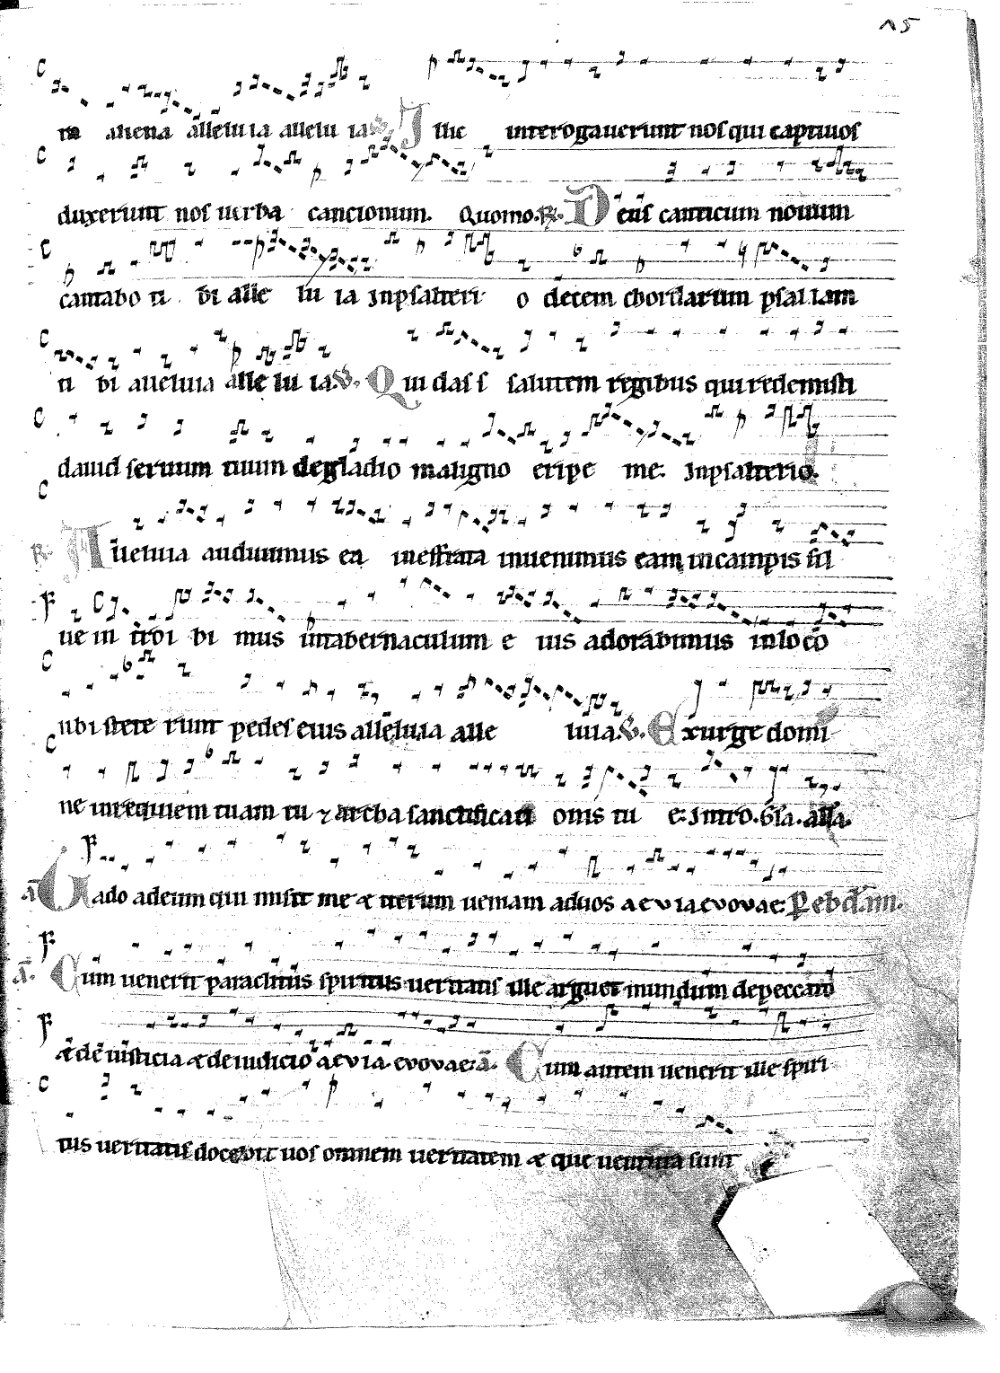 15
ra aliena alleluia allelu ia ℣. Illic interrogauerunt nos qui captiuos
duxerunt nos uerba cancionum. Quomo. ℟. Deus canticum nouum
cantabo ti bi alle lu ia Inpsalteri o decem chordarum psallam
ti bi alleluia alle lu ia ℣. Qui das s salutem regibus qui redemisti
dauid seruum tuum degladio maligno eripe me. Inpsalterio.
℟. Alleluia audiuimus ea ineffrata inuenimus eam incampis sil
ue in troi bi mus intabernaculum e ius adorabimus inloco
ubi stete runt pedes eius alleluia alle luia ℣. Exurge domi
ne inrequiem tuam tu ⁊ archa sanctificati onis tu e. Intro. Gla. alla.
a Uado adeum qui misit me et iterum ueniam aduos aeuia euouae. P ebd
a. Cum uenerit paraclitus spiritus ueritatis ille arguet mundum depeccato
et de iusticia et deiudicio aeuia. euouae. a. Cum autem uenerit ille spiri
tus ueritatis docebit uos omnem ueritatem et que uentura sunt